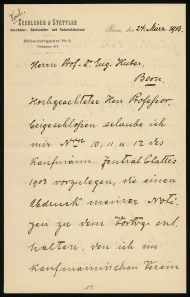 KOENLEDER & STETTLER
Advokatur-, Sachwalter- und Notariatsbureau
Bern, den 24. März 1903.
Herrn Prof. Dr. Eug. Huber,
Bern.
Hochgeachteter Herr Professor,
Eingeschlossen erlaube ich
mir Nrn 10, 11 u. 12 des
Kaufmänn. Zentral Blattes
1903 vorzulegen, die einen
Abdruck meiner Noti-
zen zu dem Vortrag ent-
halten, den ich im
kaufmännischen Verein